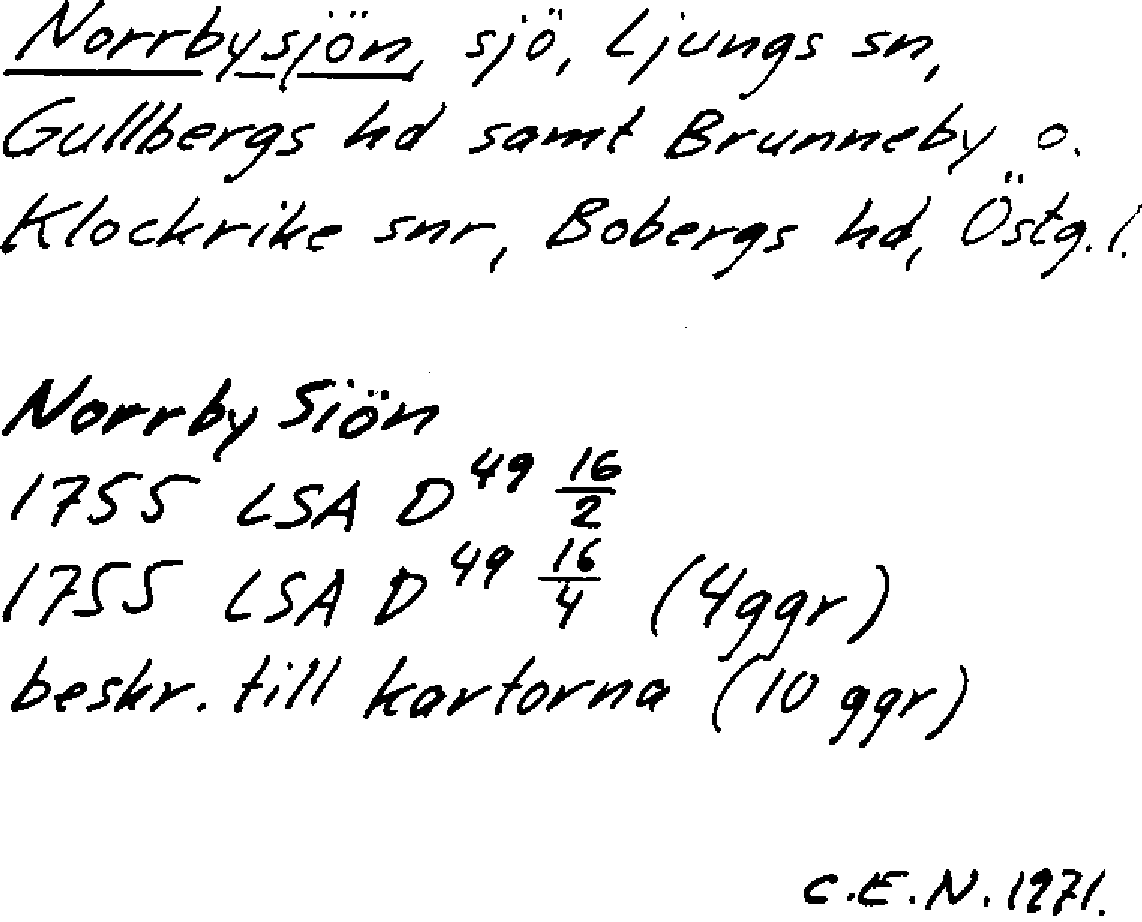 Norrbysjön, sjö, Ljungs sn,
Gullbergs hd samt Brunneby o.
Klockrike snr, Bobergs hd, Östg.l.
Norrby Siön
1755 LSA D 49 16/2
1755 LSA D 49 16/4 (4ggr)
beskr. till kartorna (10 ggr)
C.E.N. 1971.